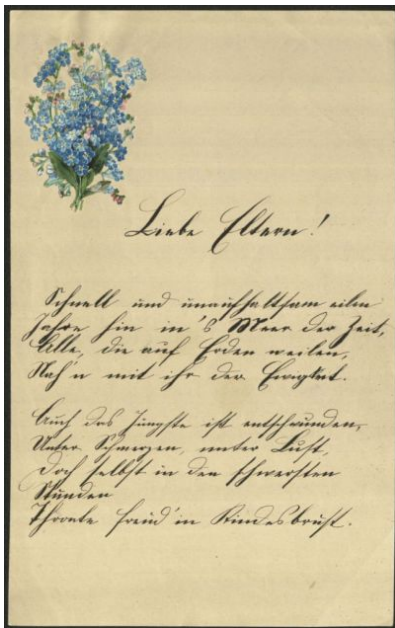 Liebe Eltern!
Schnell und unaufhaltsam eilen
Jahre hin in's Meer der Zeit,
Alle, die auf Erden weilen,
Nah'n mit ihr der Ewigkeit.
Auch das Jüngste ist entschwunden,
Unter Schmerzen, unter Lust,
Doch selbst in den schwersten
Stunden
Thronte Freud' in Kindesbrust.